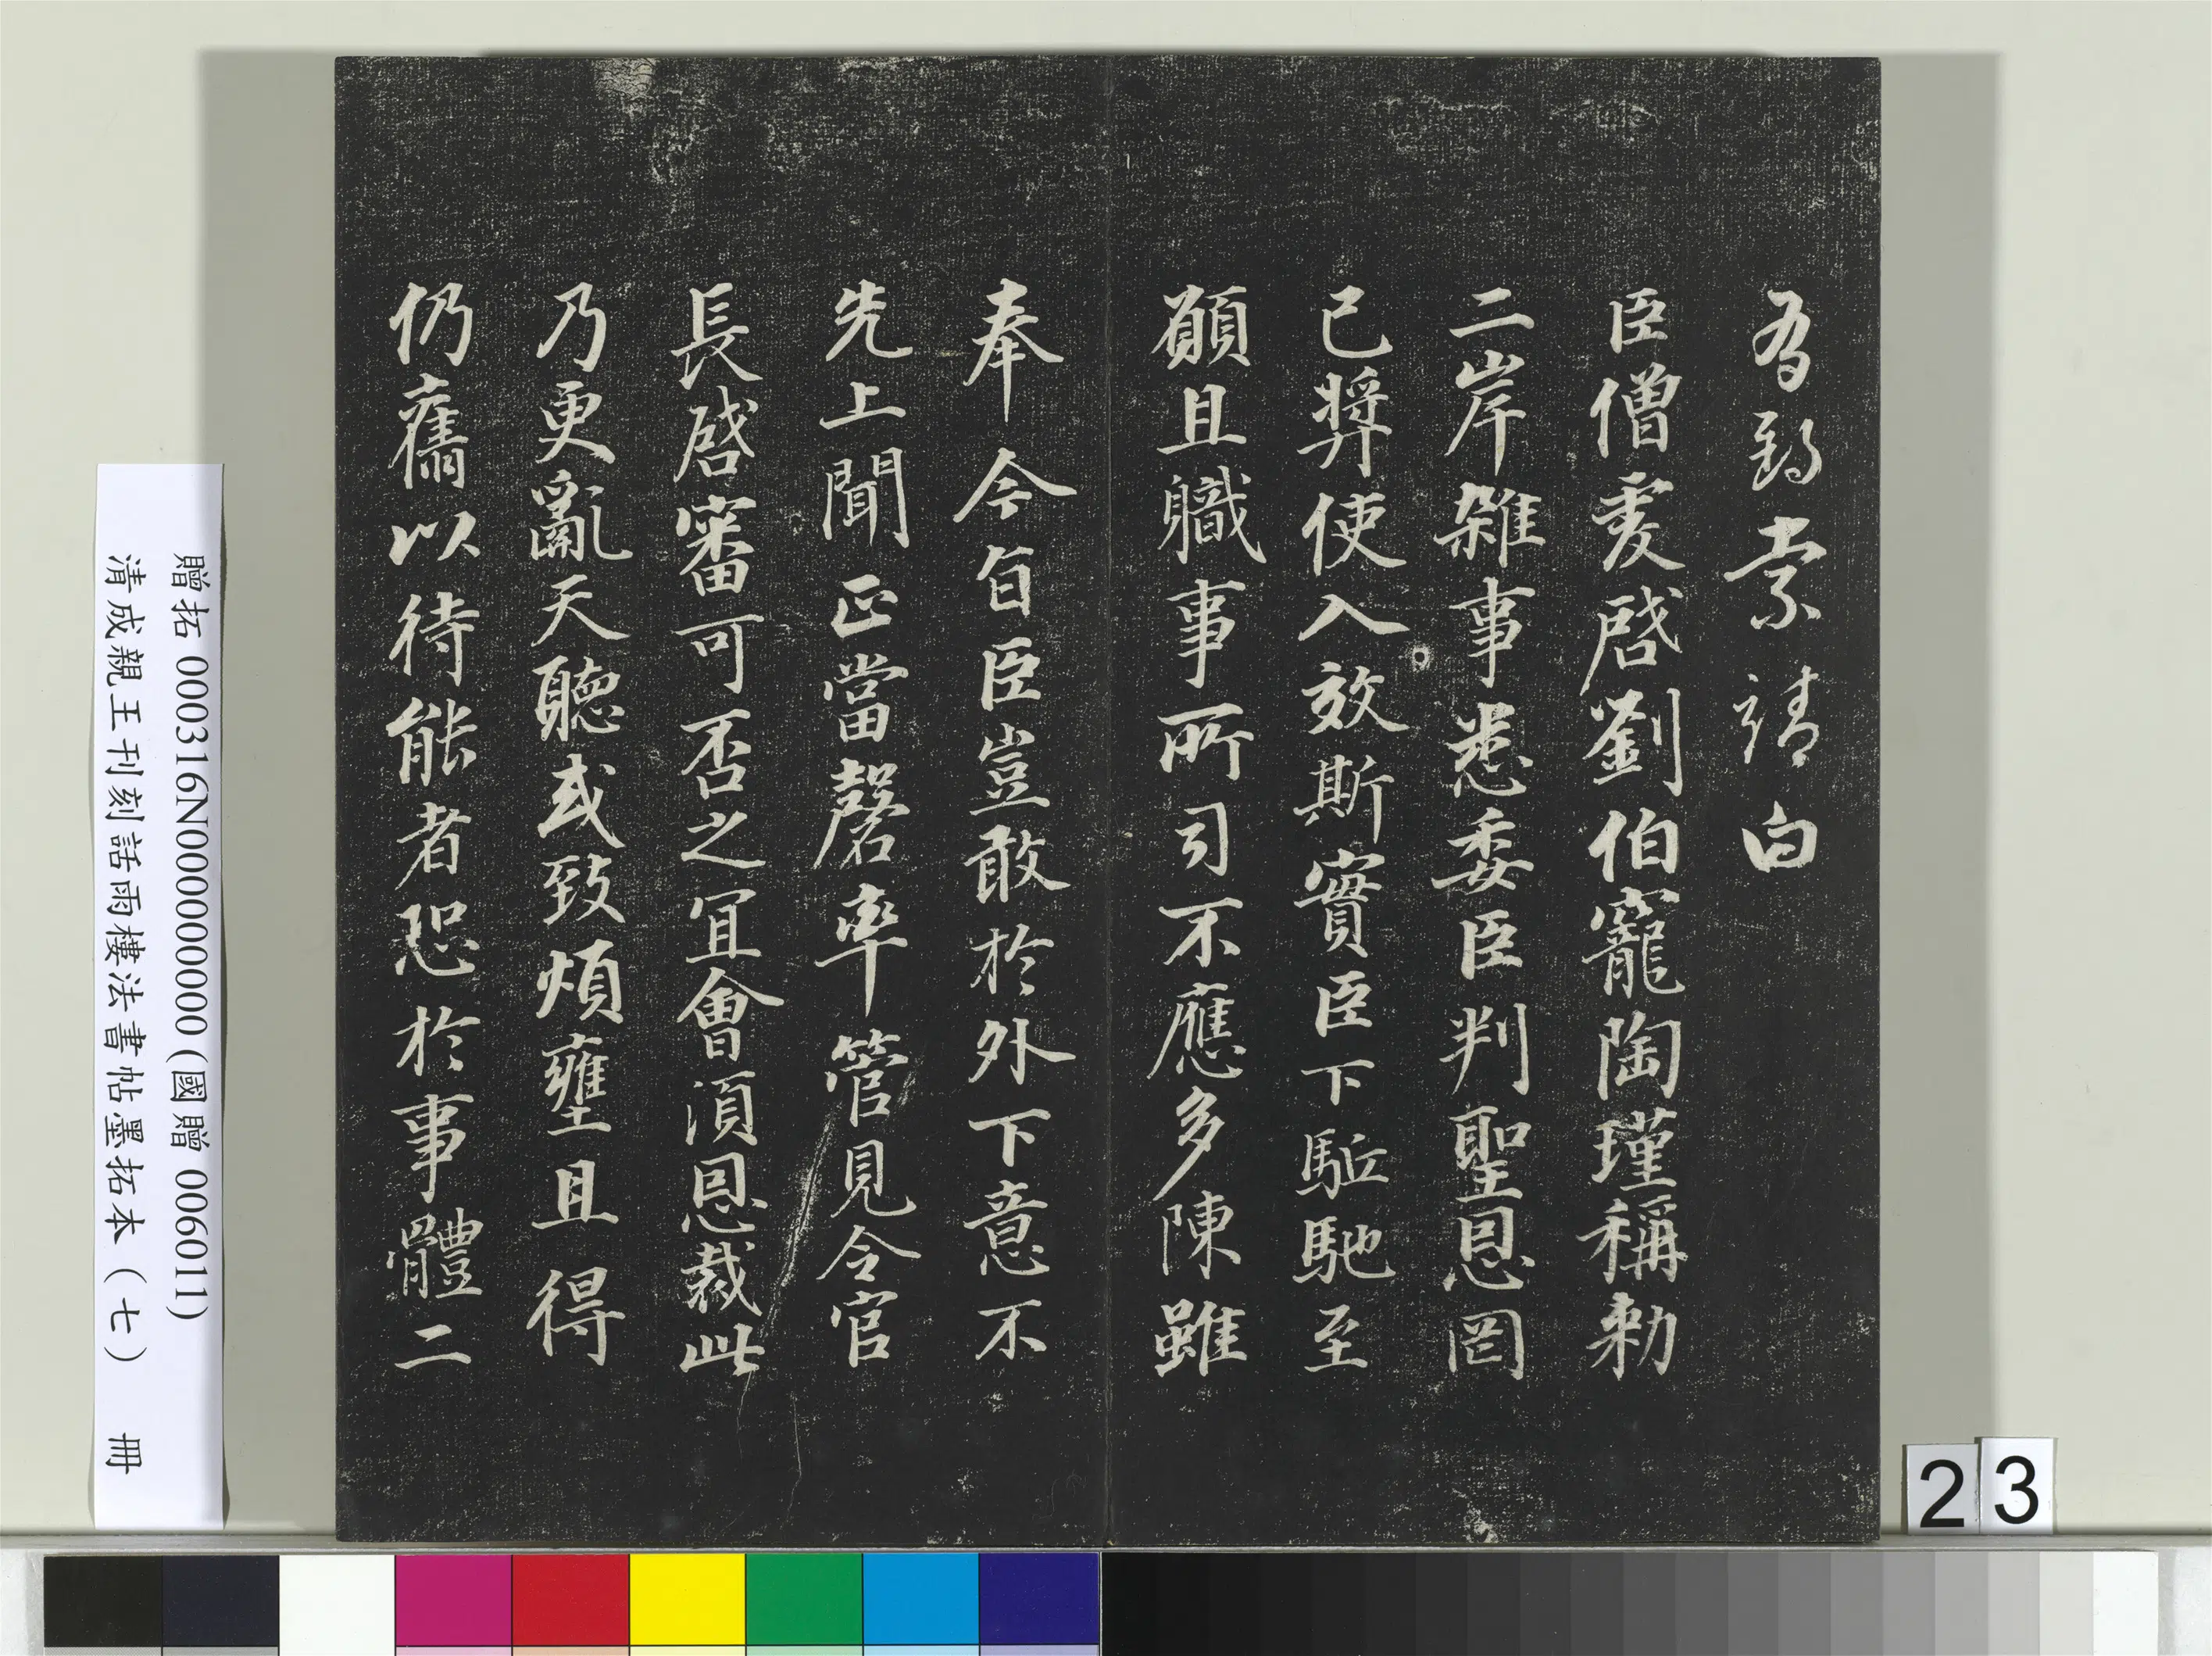 為報索靖白
臣僧虔啓劉伯寵陶瑾稱勑
二岸雜事悉委臣判聖恩罔
已奬使入效斯實臣下駈馳至
願且職事所司不應多陳雖
奉今旨臣豈敢於外下意不
先上聞正當罄率管見令官
長啓審可否之宜會湏恩裁此
乃更亂天聽或致煩壅且得
仍舊以待能者恐於事體二
贈拓 000316N000000000 (國贈 006011)
清成親王刊刻話雨樓法書帖墨拓本（七） 冊
23